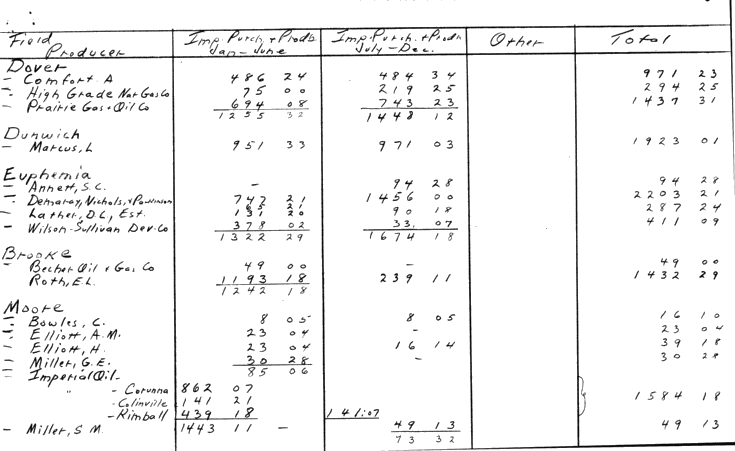 Field Producer Imp. Purch. + Prod'n Jan-June Imp. Purch. + Prod'n July-Dec. Other Total
Dover
- Comfort A 486 24 484 34 971 23
- High Grade Nat Gas Co 75 00 219 25 294 25
- Prairie Gas + Oil Co 694 08 743 23 1437 31
1255 32 1448 12
Dunwich
- Marcus, L 951 33 971 03 1923 01
Euphemia
- Annett, S.C. - 94 28 94 28
- Demaray, Nichols, + 742 21 1456 00 2203 21
- Lather, D.L, Est. 131 20 90 18 287 24
- Wilson-Sullivan Dev. Co 378 02 33. 07 411 09
1322 29 1674 18
Brooke
- Becher Oil + Gas Co 49 00 - 49 00
Roth, E.L. 1193 18 239 11 1432 29
1242 18
Moore
- Bowles, C. 8 05 8 05 16 10
- Elliott, A.M. 23 04 - 23 04
- Elliott, H. 23 04 16 14 39 18
- Miller, G.E. 30 28 - 30 28
- Imperial Oil- 85 06
" - Corunna 862 07
- Colinville 141 21 1584 18
- Kimball 439 18 141:07
- Miller, S M. 1443 11 - 49 13 49 13
73 32